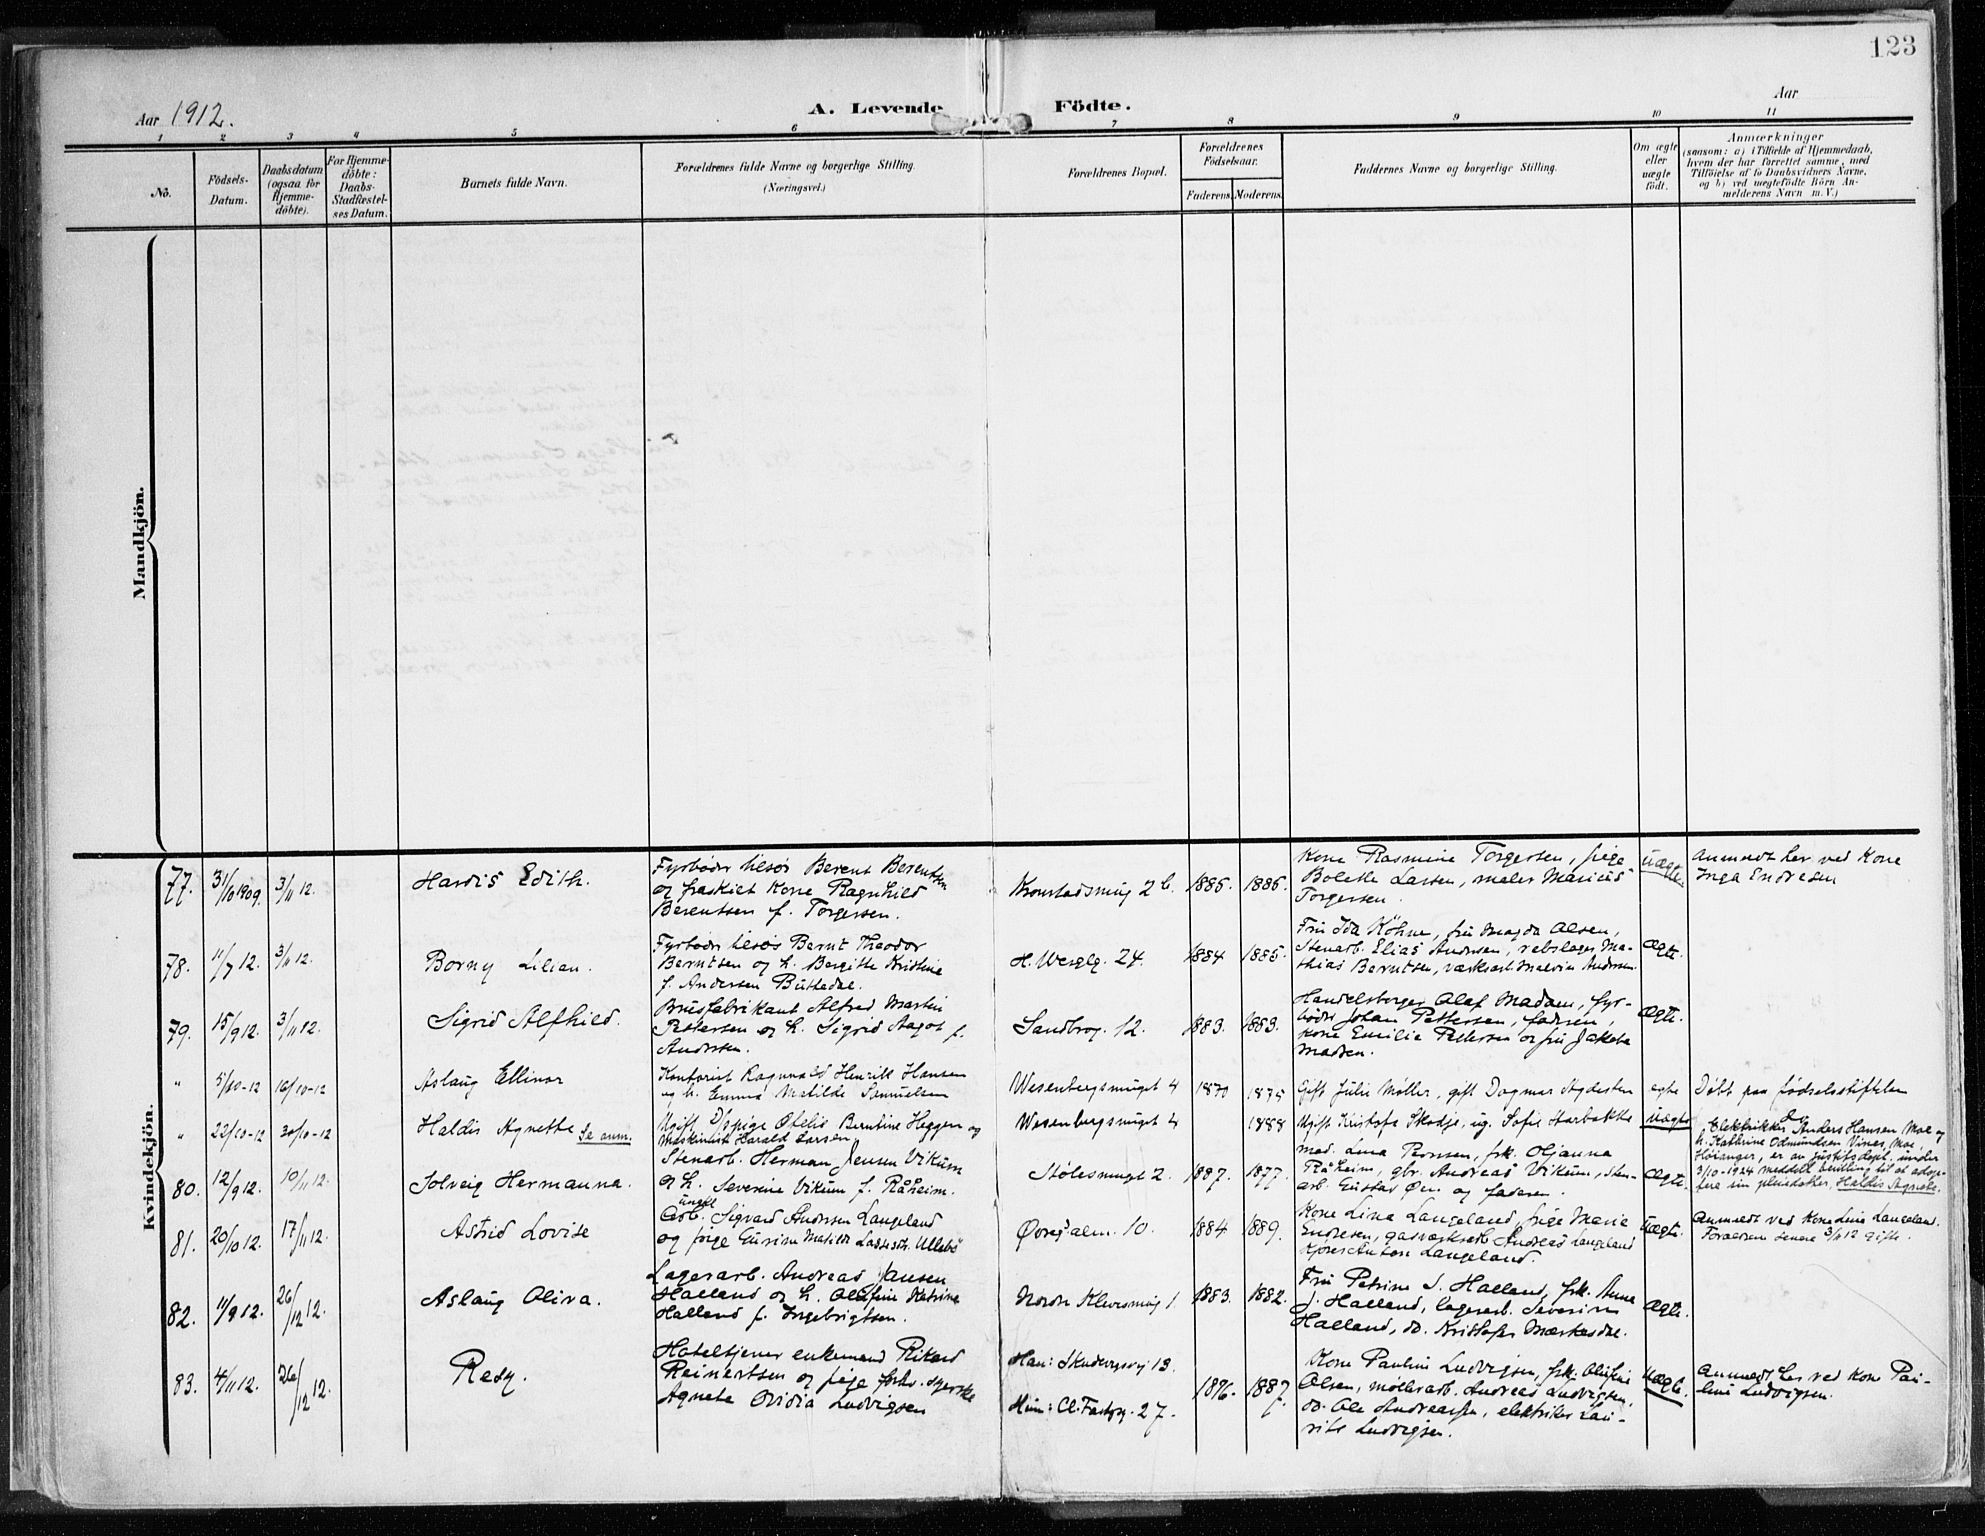 123
Aar 1912.
A. Levende Födte.
Aar
1 2 3 4 5 6 7 8 9 10 11
No.
Födsels-Datum.
Daabsdatum (ogsaa for Hjemme-döbte).
For Hjemme-döbte: Daabs-Stadfæstel-ses Datum.
Barnets fulde Navn.
Forældrenes fulde Navne og borgerlige Stilling.
(Næringsvei.)
Forældrenes Bopæl.
Forældrenes Födselsaar.
Faderens. Moderens.
Faddernes Navne og borgerlige Stilling.
Om ægte eller uægte födt.
Anmærkninger
(saasom: a) i Tilfælde af Hjemmedaab,
hvem der har forrettet samme, med
Tilföielse af to Daabsvidners Navne,
og b) ved uegtefödte Börn An-
melderens Navn m. V.)
Mandkjön.
Kvindekjön.
77. 31/10 1909. 3/11 12.
Hardis Edith.
Fyrbøder tilsøs Berent Berentsen
og fraskilt Kone Ragnhild
Berentsen f. Torgersen.
2 b. 1885. 1886.
Kone Rasmine Torgersen, pige
Bolette Larsen, maler Marius
Torgersen.
Uægte.
Anmeldt her ved Kone
Inga Endresen
78. 11/7 12. 3/11 12.
Borny Lilian.
Fyrbøder tilsøs Bernt Theodor
Berntsen og h. Bergitte Kristine
f. Andersen Buttedal.
H. Wergelg. 24. 1884 1885.
Fru Ida Köhn, fru Magda Olsen,
Stenarb. Elias Andersen, rebslager Ma-
thias Berntsen, værksarb. Malvin Andersen.
Ægte.
79. 15/9 12. 3/11 12.
Sigrid Alfhild.
Brusfabrikant Alfred Martin
Pettersen og h. Sigrid Aagot f.
Andersen.
Sandbrog. 12. 1883. 1883.
Handelsborger Olaf Madsen, fyr-
bøder Johan Pettersen, faderen,
Kone Emilie Pettersen og fru Jakobe
Madsen.
Ægte.
" 5/10-12 16/10-12
Aslaug Ellinor
Kontorist Ragnvald Henrik Hansen
og h. Emma Matilde Samuelsen
Wesenbergsmuget 4 1870 1875
Gift Julie Møller, gift Dagmar
egte
Døbt paa fødselsstiftelsen
" 22/10-12 30/10-12
Haldis Agnethe Se anm.
Ugift Pige Ofelie Berntine Heggen og
Maskinist Harald Larsen
Wesenbergsmuget 4 1888
Ugift Kristofa Skodje, ug. Sofie
Uægte
Do
Elektriker Anders Hansen Moe og
h. Kathrine Odmundsen Vines, Moe,
Høianger, er av justitsdept. under
3/10-1924 meddelt bevilling til at adop-
tere sin pleiedatter, Haldis Agnethe.
80. 12/9 12. 10/11 12.
Solveig Hermanna.
Stenarb. Herman Jensen Vikum
og h. Severine Vikum f. Råheim.
Stølesmuget 2. 1887. 1877.
mad. Lina Pernsen, frk. Oljanna
Råheim, gbr. Andreas Vikum, sten-
arb. Gustav Øen og faderen.
Ægte.
81. 20/10 12. 17/11 12.
Astrid Lovise
ungk.
Arb. Sigvard Andersen Langeland
og pige Gurine Matilde Ullebø
10. 1884 1889.
Kone Lina Langeland, pige Marie
Endresen, gasværksarb. Andreas Langeland
Anton Langeland.
Uægte.
Anmeldt ved Kone Lina Langeland.
Forældrene senere 3/11 12 gifte.
82. 11/9 12. 26/12 12.
Aslaug Oliva.
Lagerarb. Andreas Jansen
Halland og h. Olufine Katrine
Halland f. Ingebrigtsen.
Nordre Kleivsmug 1. 1883. 1882.
Fru Petrine J. Halland, frk. Anna
J. Halland, lagerarb. Severin
Halland, do. Kristofer Markesdal.
Ægte.
83. 4/11 12. 26/12 12.
Resy.
Hoteltjener enkemand Rikard
Reinertsen og pige forhv. syerske
Agnete Ovidia Ludvigsen
Han: Skudevigsvej 13.
Hun: Cl. Fastg. 27.
1876. 1887.
Kone Pauline Ludvigsen, frk. Olufine
Olsen, møllerarb. Andreas Ludvigsen,
do. Ole Andreassen, elektriker Lau-
ritz Ludvigsen.
Uægte.
Anmeldt her ved Kone Pau-
line Ludvigsen.